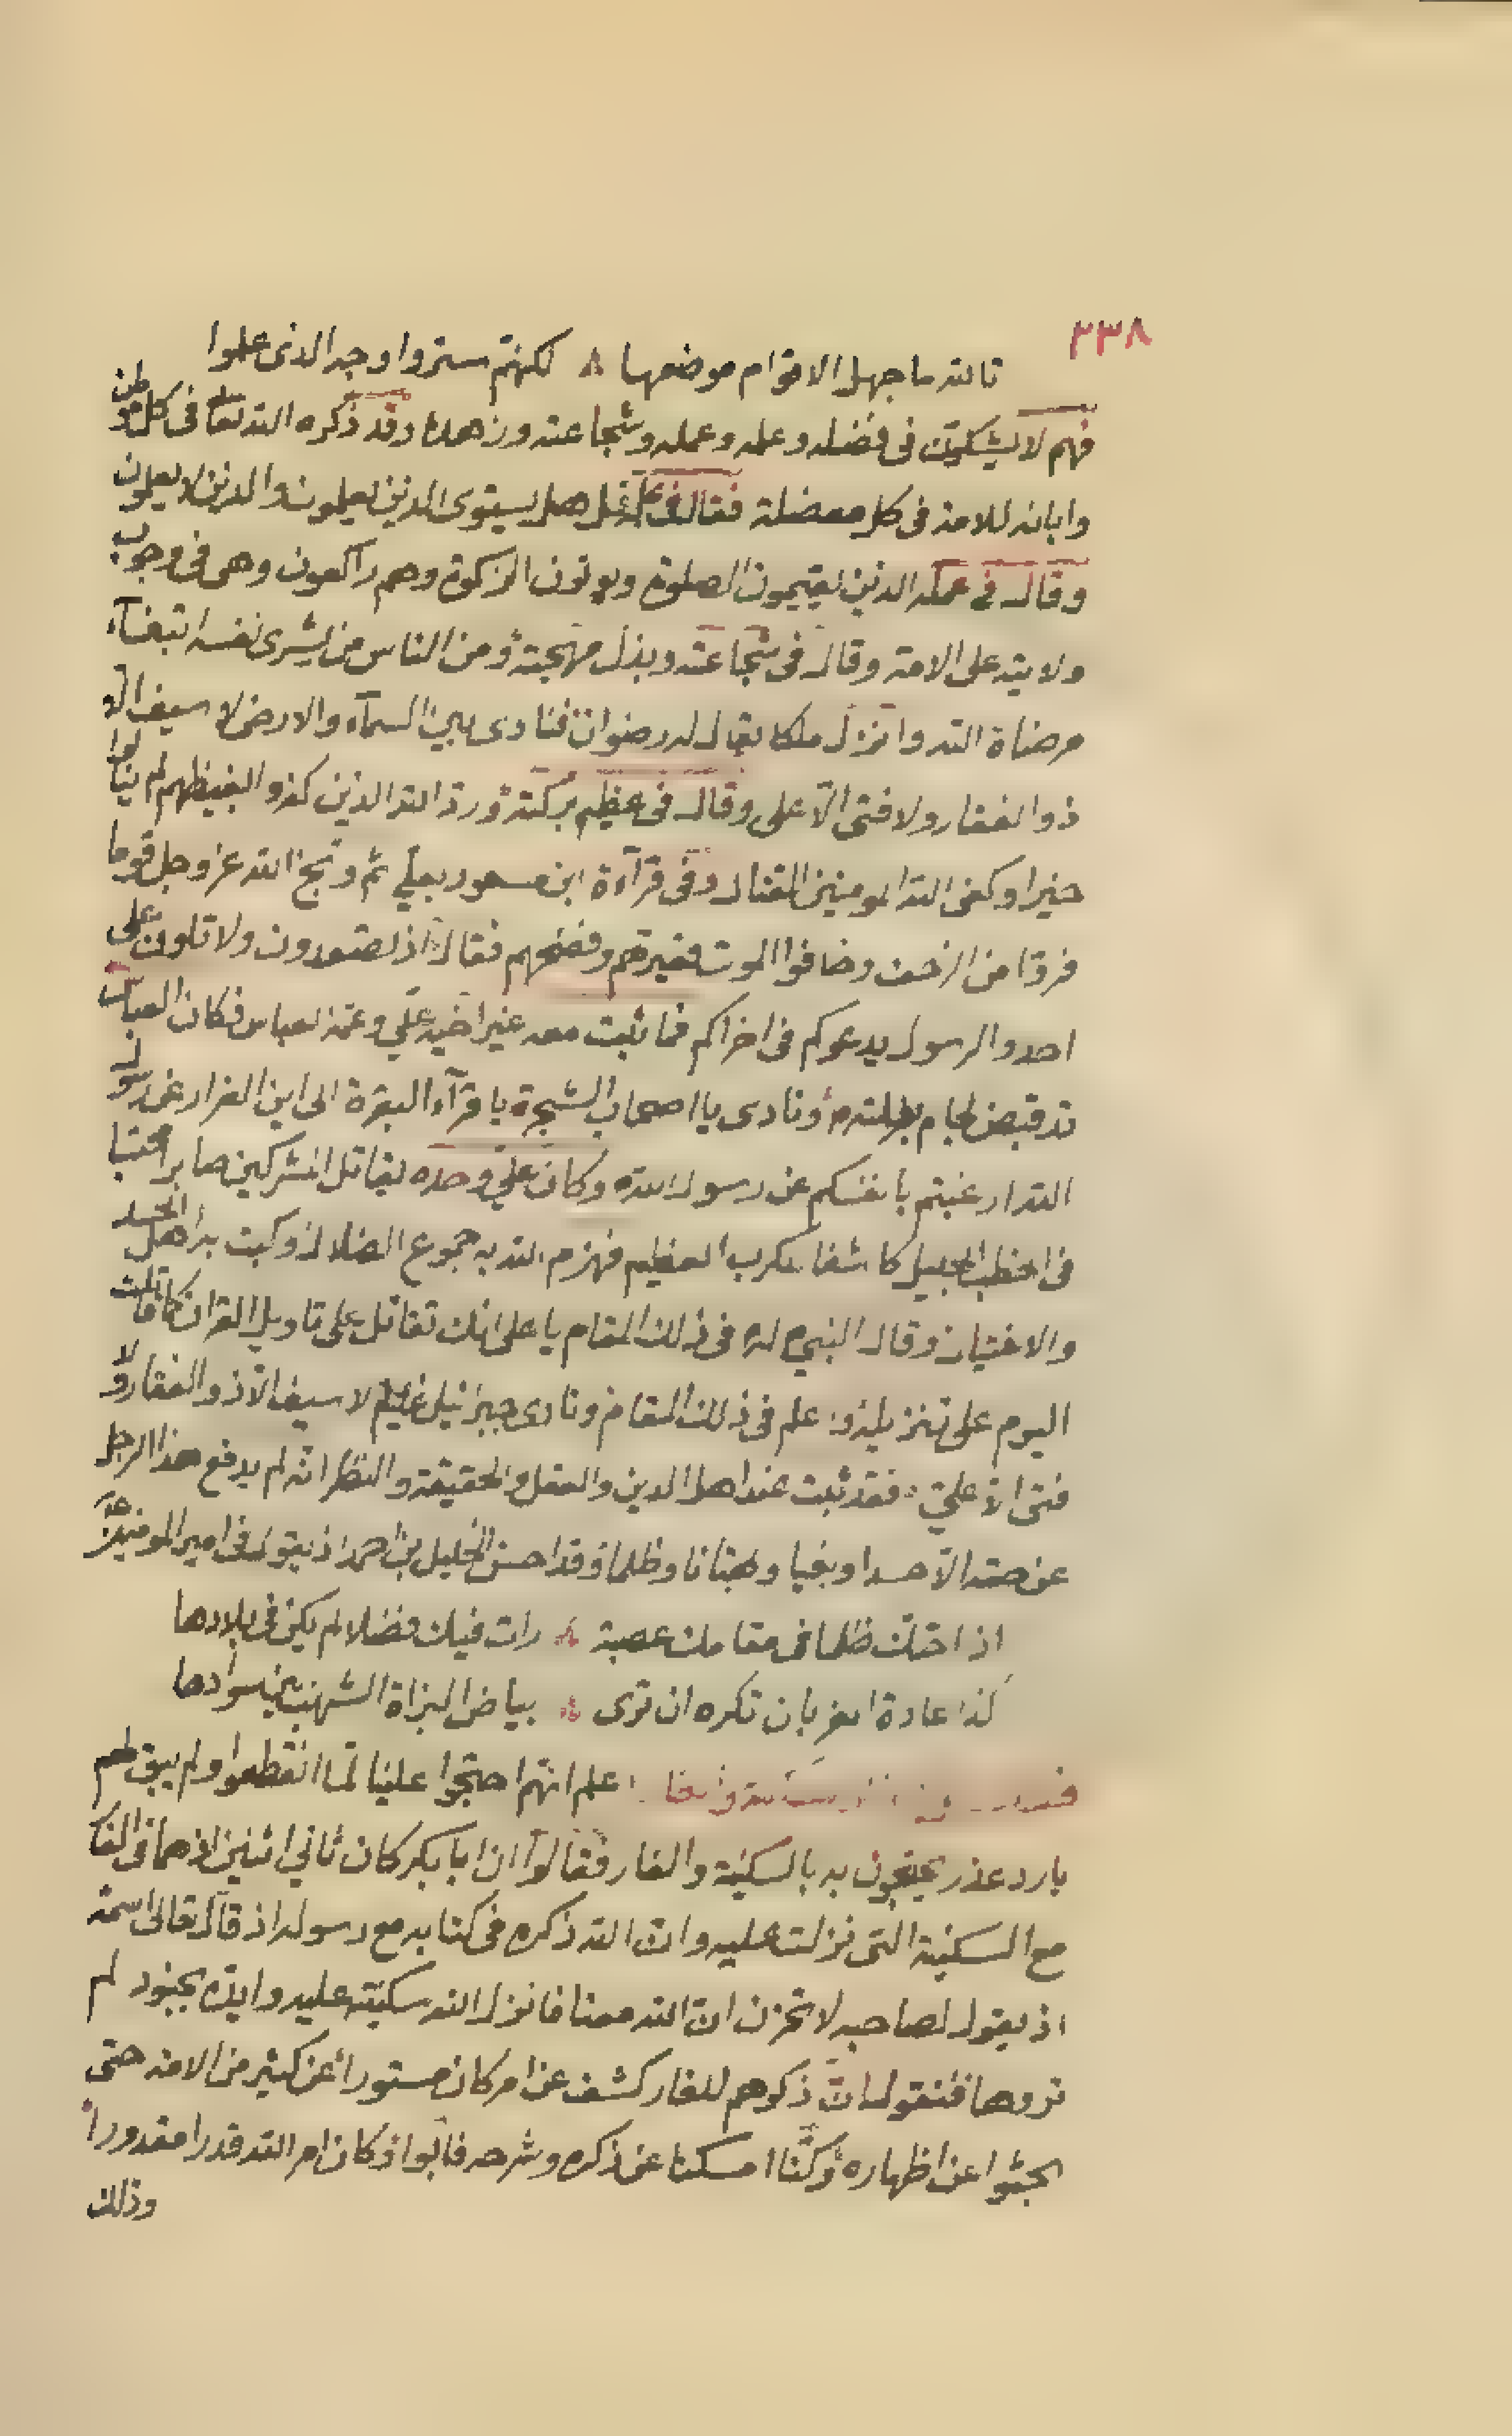 ٣٣٨
تالله ما جهل الاقوام موضعها ٨ لكنهم ستروا وجه الذى علموا
فهم لا يشكون فى فضله وعلمه وعمله وشجاعته وزهده وقد ذكره الله تعالى فى كل موطن
وابانه للامة فى كل معضلة فقال فى علمه قل هل يستوى الذين يعلمون والذين لا يعلمون
وقال فى عمله الذين يقيمون الصلوة ويوتون الزكوة وهم راكعون وهى فى وجوب
ولايته على الامة وقال فى شجاعته وبذل مهجته ومن الناس من يشرى نفسه ابتغاء
مرضاة الله وانزل ملكا يقال له رضوان فنادى بين السماء والارض لا سيف الا
ذو الفقار ولا فتى الا على وقال فى عظيم بركته ورد الله الذين كفروا بغيظهم لم ينالوا
خيرا وكفى الله المومنين القتال وفى قراءة ابن مسعود بعلي ثم وبخ الله عز وجل قوما
فروا من الزحف وخافوا الموت فعيرهم وفضحهم فقال اذ تصعدون ولا تلون على
احد والرسول يدعوكم فى اخراكم فما ثبت معه غير اخيه علي وعمه العباس فكان العباس
قد قبض لجام بغلته ونادى يا اصحاب الشجرة يا قراء البقرة الى اين الفرار عن رسول
الله ارغبتم بانفسكم عن رسول الله وكان علي وحده يقاتل المشركين صابرا محتسبا
فى الخطب الجليل كاشفا لكرب العظيم فهزم الله به جموع الضلال وكبت به اهل الحسد
وقال النبي له فى ذلك المقام يا على انك تقاتل على تاويل القران كما قاتلت
اليوم على تنزيله واعلم فى ذلك المقام ونادى جبرئيل لا سيف الا ذو الفقار ولا
فتى الا علي فقد ثبت عند اهل الدين والعقل والحقيقة والنظر انه لم يدفع هذا الرجل
عن حقه الا حسدا وبغيا وبهتانا وظلما وقد احسن الخليل بن احمد اذ يقول فى امير المومنين
اذا حتك ظلما فى مقامك عصبة ٨ رات فيك فضلا لم يكن فى بلادها
كذا عادة الغربان تكره ان ترى ٨ بياض البزاة الشهب سوادها
اعلم انهم احتجوا علينا لما انقطعوا ولم يبق لهم
بارد عذر يحتجون به بالسكينة والغار فقالوا ان ابا بكر كان ثاني اثنين اذ هما فى الغار
مع السكينة التى نزلت عليه وان الله ذكره فى كتابه مع رسوله اذ قال تعالى اسمه
اذ يقول لصاحبه لا تحزن ان الله معنا فانزل الله سكينته عليه وايده بجنود لم
تروها فنقول ان ذكرهم للغار كشف عن امر كان مستورا عن كثير من الامة حتى
بحثوا عن اظهاره وكنا امسكنا عن ذكره وشرحه فابوا وكان امر الله قدرا مقدورا
وذلك